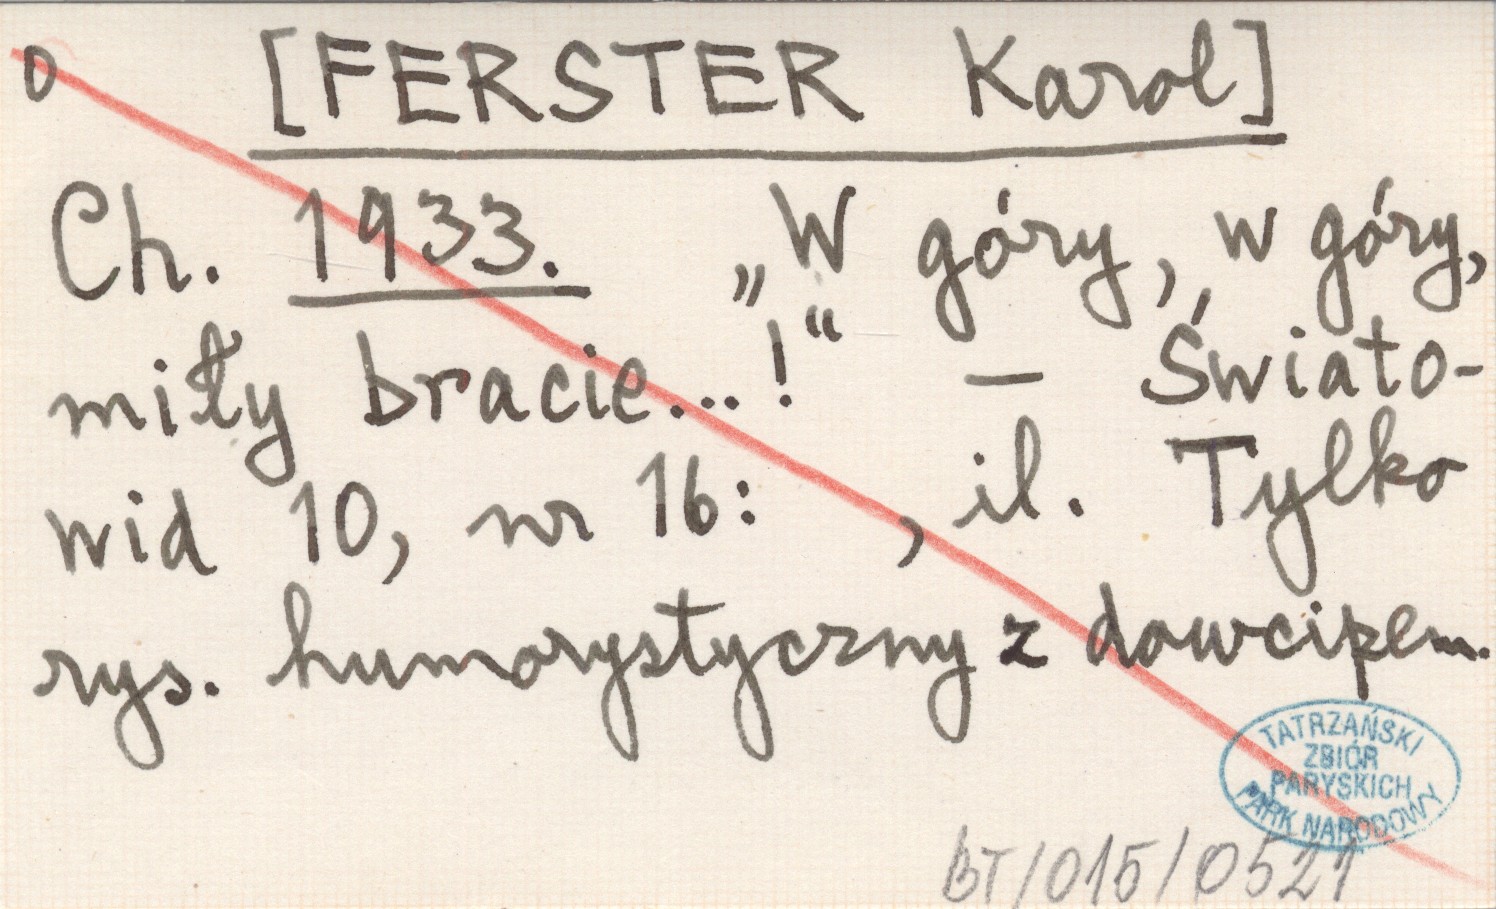 0 [FERSTER Karol]
Ch. 1933. „W góry, w góry,
miły bracie...!“ — Świato-
wid 10, nr 16: , il. Tylko
rys. humorystyczny z dowcipem.
TATRZAŃSKI
ZBIÓR
PARYSKICH
PARK NARODOWY
BT/015/0521